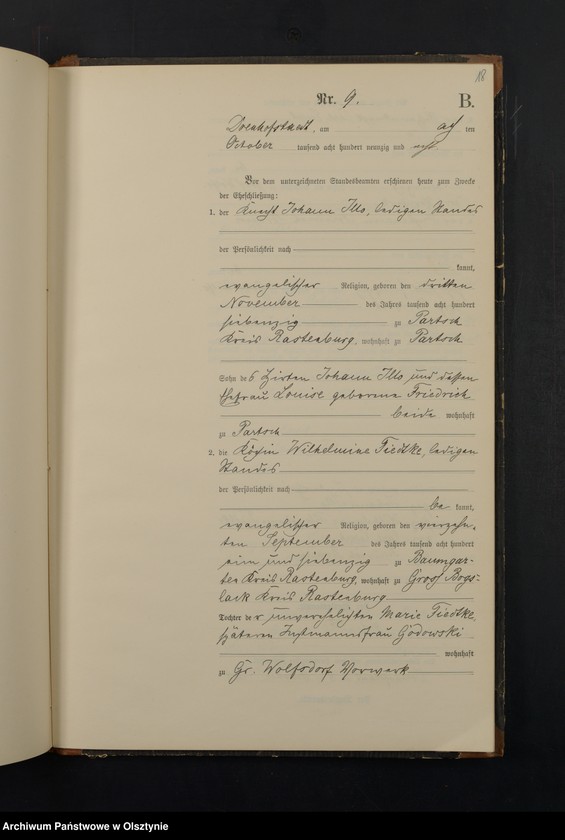 18
Nr. 9.
B.
Drenhofstaedt, am acht ten
October tausend acht hundert neunzig und acht
Vor dem unterzeichneten Standesbeamten erschienen heute zum Zwecke
der Eheschließung:
1. der Knecht Johann Illo, ledigen Standes
der Persönlichkeit nach
kannt,
evangelischer Religion, geboren den dritten
November des Jahres tausend acht hundert
siebenzig zu Partsch
Kreis Rastenburg, wohnhaft zu Partsch
Sohn des Hirten Johann Illo und dessen
Ehefrau Louise geborene Friedrich
beide wohnhaft
zu Partsch
2. die Köchin Wilhelmine Tiedtke, ledigen
Standes
der Persönlichkeit nach
be kannt,
evangelischer Religion, geboren den vierzehn-
ten September des Jahres tausend acht hundert
ein und siebenzig zu Baumgar-
ten Kreis Rastenburg, wohnhaft zu Gross Bogs-
lack Kreis Rastenburg
Tochter der unverehelichten Marie Tiedtke,
späteren Instmannsfrau Godowski
wohnhaft
zu Gr. Wolfsdorf Vorwerk
Archiwum Państwowe w Olsztynie